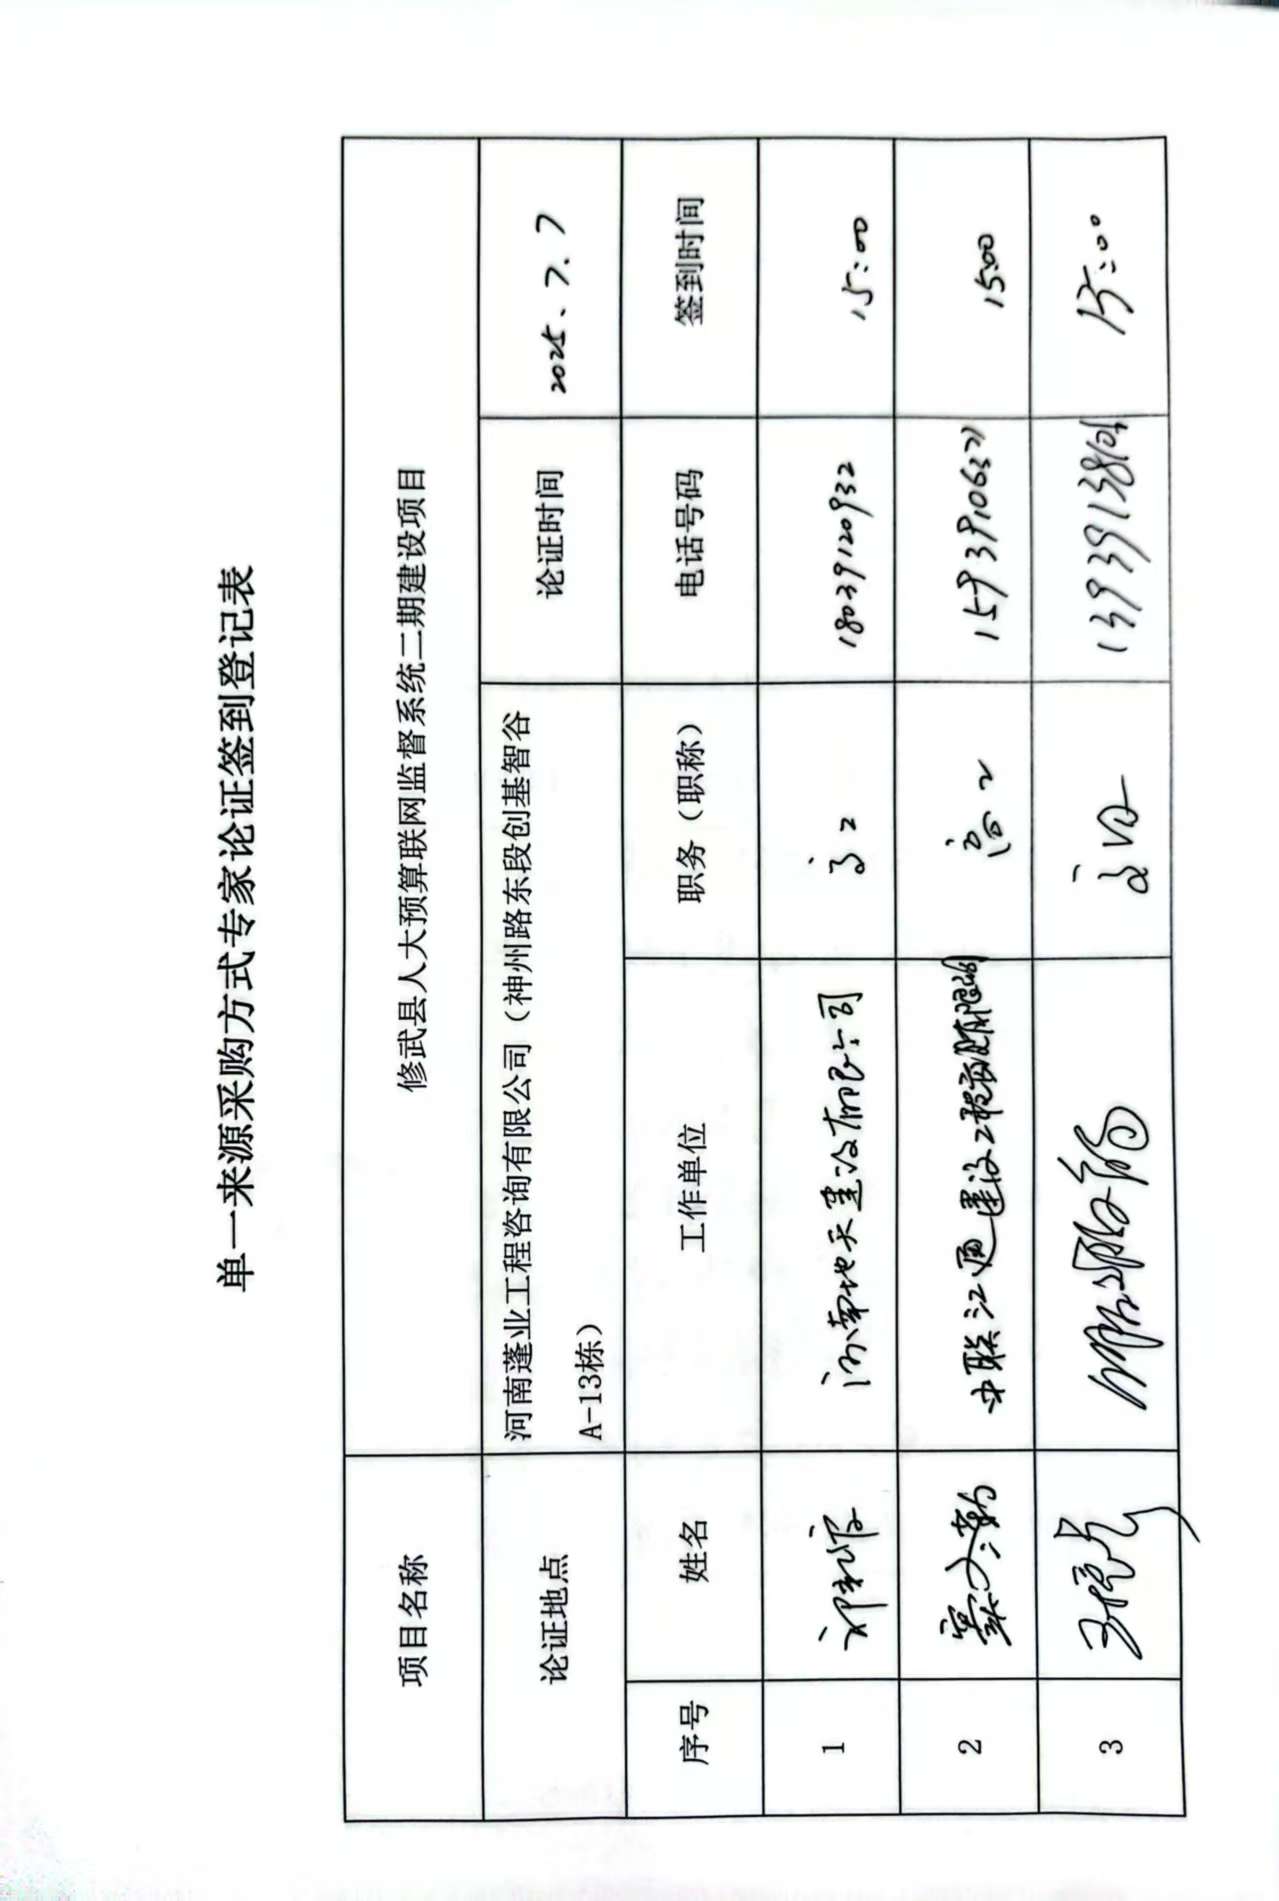 单一来源采购方式专家论证签到登记表
项目名称 修武县人大预算联网监督系统二期建设项目
论证地点 河南蓬业工程咨询有限公司（神州路东段创基智谷
A-13栋） 论证时间 2025、7、7
序号 姓名 工作单位 职务（职称） 电话号码 签到时间
1 河南地天建设有限公司 高工 18039120932 15:00
2 中联江通建设工程 高工 15:00
3 15:00